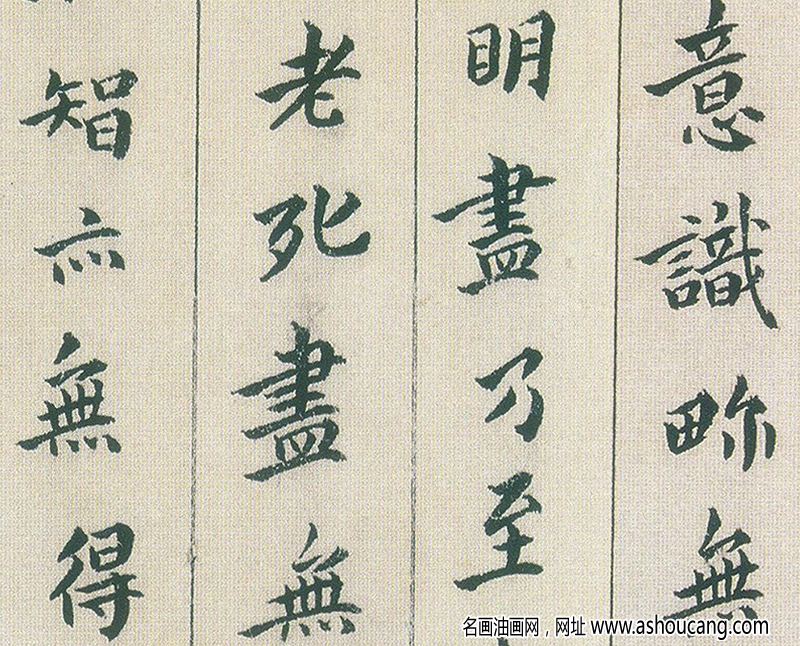 意識畍無
明盡乃至
老死盡無
智亦無得
名画油画网，网址 www.ashoucang.com